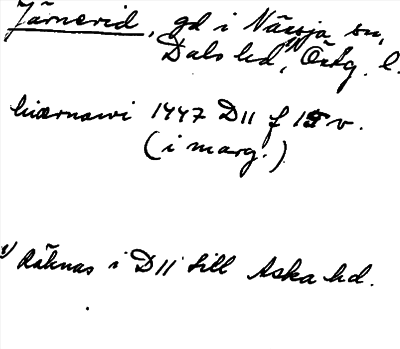 Järnevid, gd i Nässja sn,
Dals hd, Östg. l.
hiærnawi 1447 D11 f 15 v.
(i marg.)
1) Räknas i D11 till Aska hd.